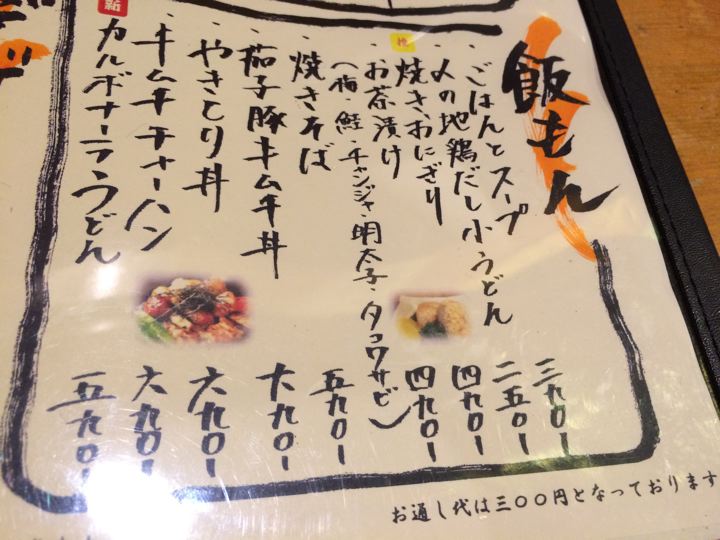 飯もん
・ごはんとスープ 三九〇ー
・〆の地鶏だし小うどん 二五〇ー
焼きおにぎり 四九〇ー
・お茶漬け 四九〇ー
(梅・鮭・チャンジャ・明太子・タコワサビ)
・焼きそば 五九〇ー
・茄子豚キムチ丼 六九〇ー
・やきとり丼 六九〇ー
・キムチチャーハン 六九〇ー
新
カルボナーラうどん 五九〇ー
お通し代は三〇〇円となっております